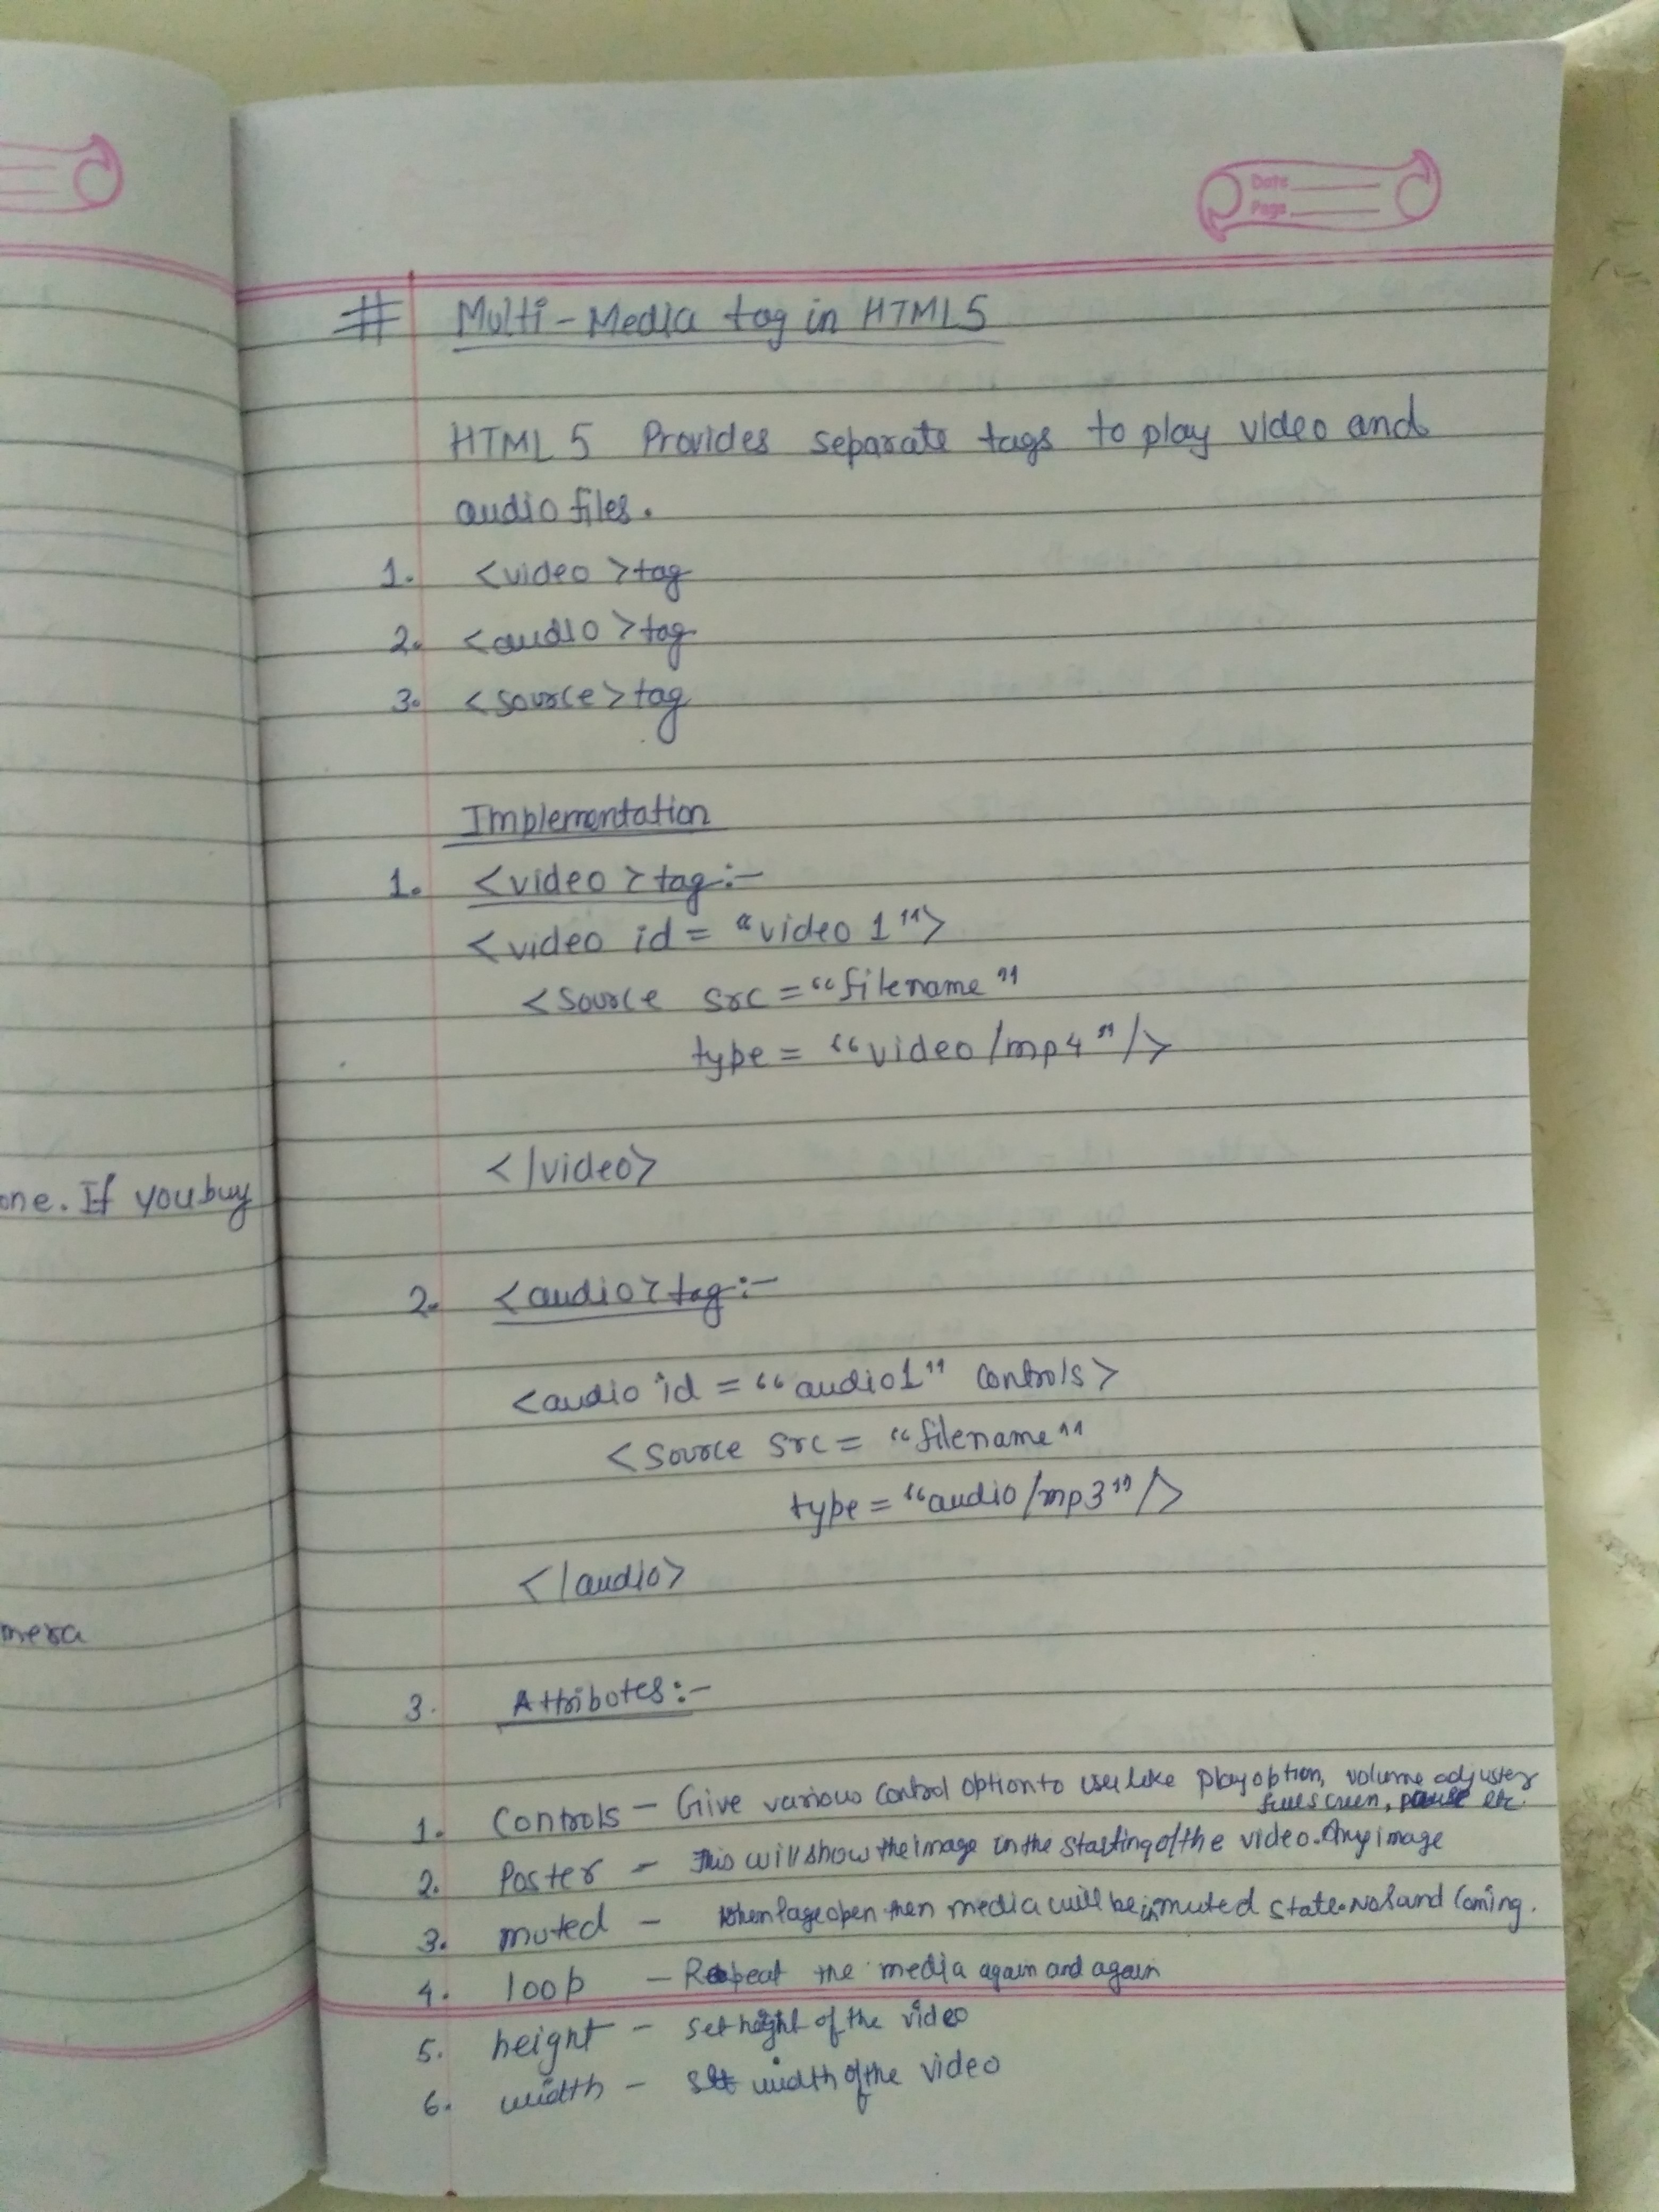 Date
Page
# Multi-Media tag in HTML5
HTML 5 Provides separate tags to play video and
audio files.
1. <video> tag
2. <audio> tag
3. <source> tag
Implementation
1. <video> tag:-
<video id = "video 1">
<source src = "filename"
type = "video/mp4"/>
</video>
one. If you buy
2. <audio> tag:-
<audio id = "audio1" controls>
<source src = "filename"
type = "audio/mp3"/>
</audio>
mera
3. Attributes:-
1. Controls - Give various control option to user like play option, volume adjuster
full screen, pause etc.
2. Poster - This will show the image in the starting of the video. Any image
3. muted - When Page open then media will be in muted state. No Sound Coming.
4. loop - Repeat the media again and again
5. height - set height of the video
6. width - set width of the video